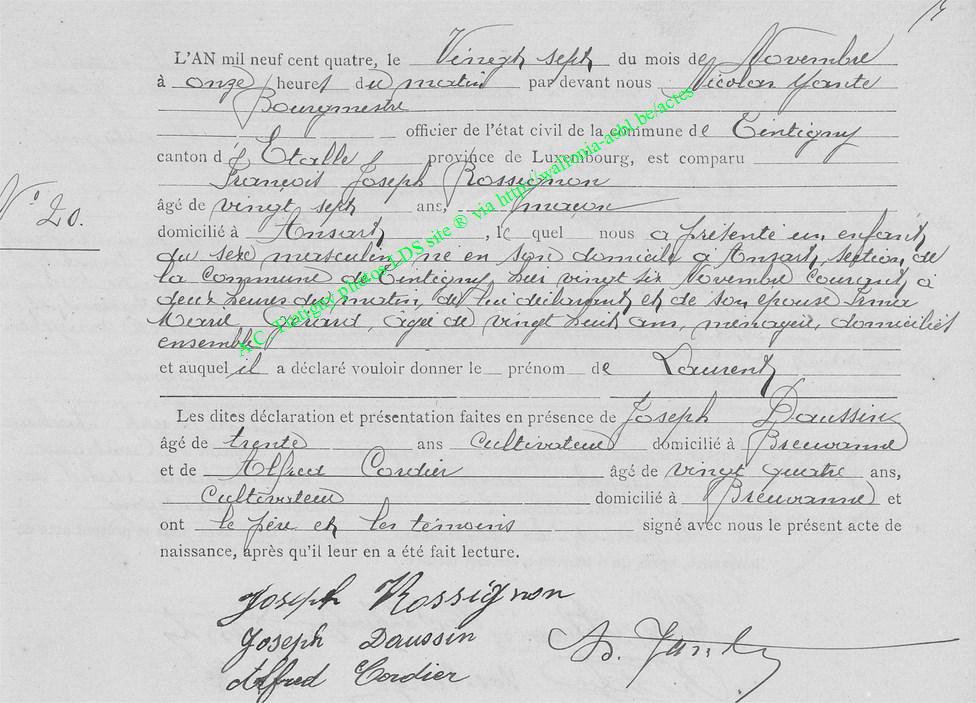 L'AN mil neuf cent quatre, le Vinegt sept du mois de Novembre
à onze heures du matin par devant nous Nicolas Yante
Bourgmestre
officier de l'état civil de la commune de Tintigny
canton d'Etalle province de Luxembourg, est comparu
François Joseph Rossignon
N° 20.
âgé de vingt sept ans, maçon
domicilié à Ansart, lequel nous a présenté un enfant
du sexe masculin, né en son domicile à Ansart, section de
la Commune de Tintigny, hier vingt six Novembre courant, à
deux heures du matin, de lui déclarant et de son épouse Irma
Marie Gérard, âgée de vingt huit ans, ménagère, domiciliés
ensemble
et auquel il a déclaré vouloir donner le prénom de Laurent
Les dites déclaration et présentation faites en présence de Joseph Daussin
âgé de trente ans cultivateur domicilié à Breuvanne
et de Alfred Cordier âgé de vingt quatre ans,
Cultivateur domicilié à Breuvanne et
ont le père et les témoins signé avec nous le présent acte de
naissance, après qu'il leur en a été fait lecture.
Joseph Rossignon
Joseph Daussin
Alfred Cordier
N. Yante
AC. Tintigny photos LDS site ® via http://wallonia-asbl.be/actes